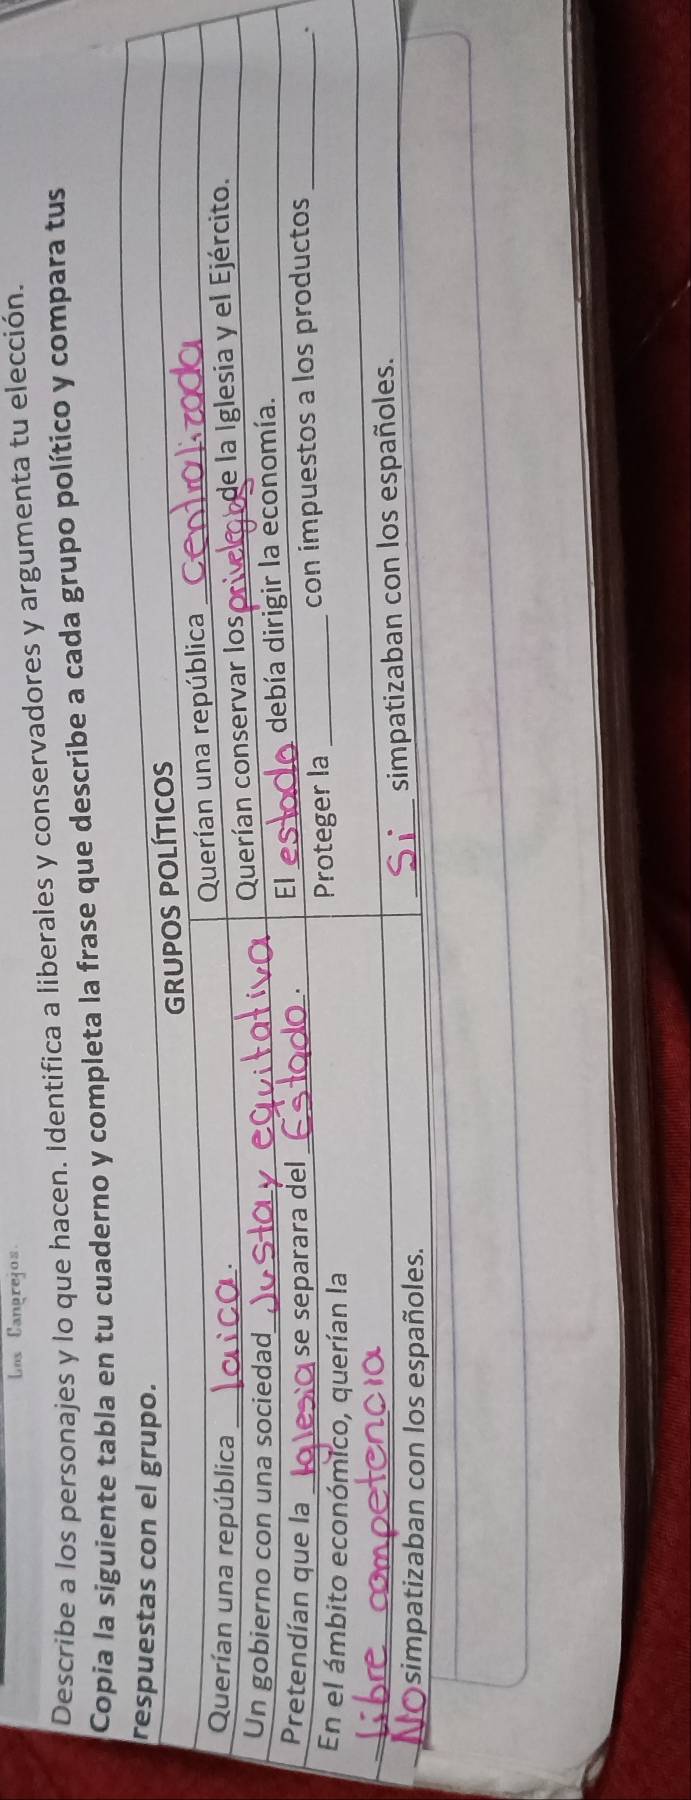 Los Cangrejos.
Describe a los personajes y lo que hacen. Identifica a liberales y conservadores y argumenta tu elección.
Copia la siguiente tabla en tu cuaderno y completa la frase que describe a cada grupo político y compara tus
respuestas con el grupo.
GRUPOS POLÍTICOS
Querían una república laica.
Querían una república centralizada
Un gobierno con una sociedad Justa y equitativa
Querían conservar los privelegios de la Iglesia y el Ejército.
Pretendían que la Iglesia se separara del Estado.
El estado debía dirigir la economía.
En el ámbito económico, querían la
libre competencia
Proteger la ________ con impuestos a los productos ________.
No simpatizaban con los españoles.
Si simpatizaban con los españoles.